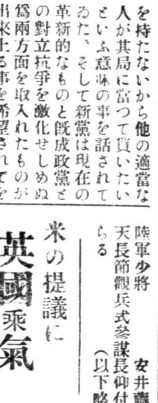 を持たないから他の適當な
人が其局に當つて貰いたい
といふ意味の事を話されて
ゐた、そして新黨は現在の
革新的なものと既成政黨と
の對立抗爭を激化せしめぬ
爲兩方面を取入れたものが
出來上る事を希望されてを
陸軍少將 安井藤
天長節觀兵式參謀長仰付
らる (以下略
米の提議に
英國乘氣